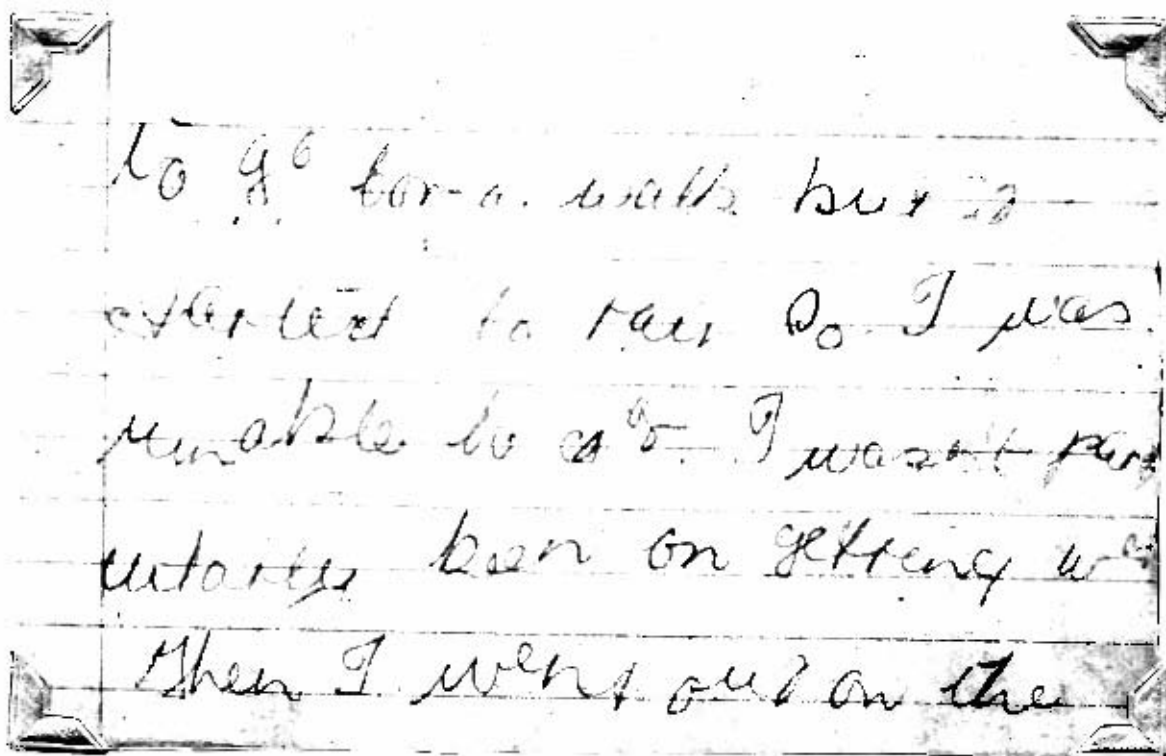 to go for a walk but it
started to rain so I was
unable to do so. I wasn't par
keen on getting wet
Then I went out on the